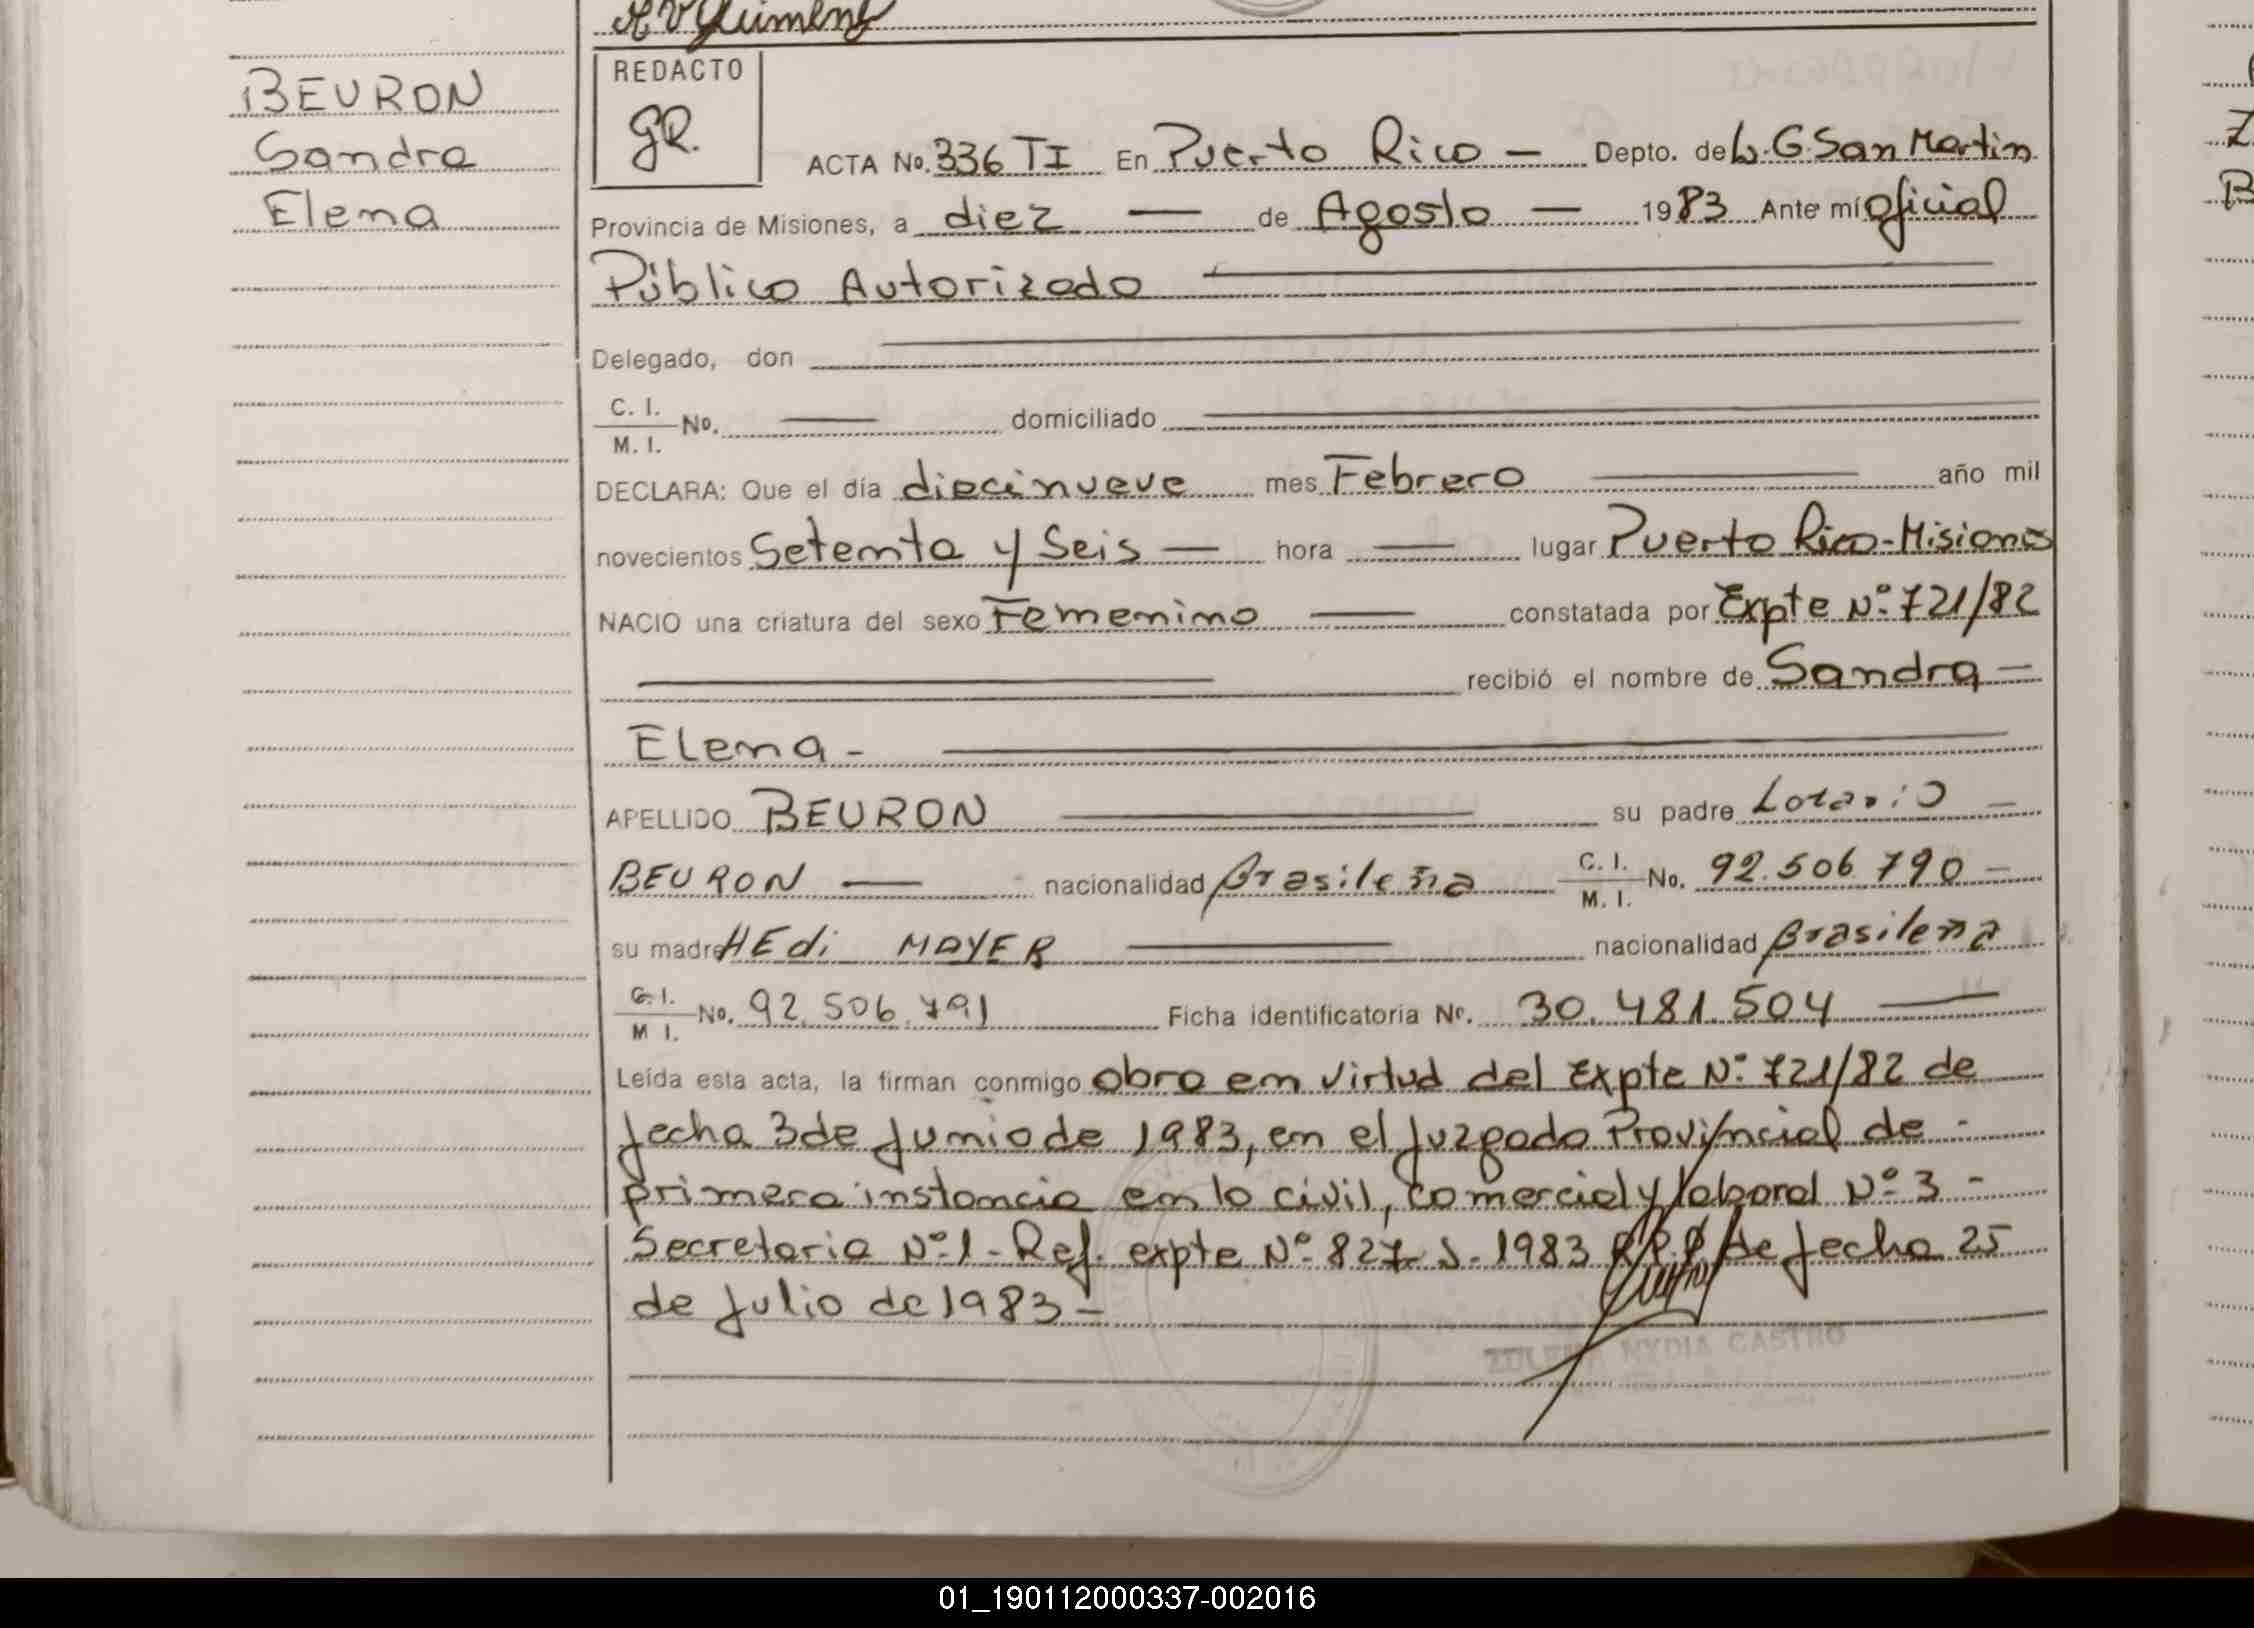 BEURON
Sandra
Elena
REDACTO
GR.
ACTA No. 336 TI En Puerto Rico - Depto. de L.G. San Martin
Provincia de Misiones, a diez — de Agosto — 1983 Ante mí oficial
Público Autorizado
Delegado, don
C. I.
M. I. No. — domiciliado
DECLARA: Que el día diecinueve mes Febrero — año mil
novecientos Setenta y Seis — hora — lugar Puerto Rico-Misiones
NACIO una criatura del sexo Femenino — constatada por Expte Nº 721/82
recibió el nombre de Sandra -
Elena -
APELLIDO BEURON — su padre Lotario -
BEURON — nacionalidad Brasileña C. I. M. I. No. 92.506.790 -
su madre HEdi MAYER — nacionalidad Brasileña
C. I. M I. No. 92.506.791 Ficha identificatoria Nº. 30.481.504 —
Leída esta acta, la firman conmigo obra en virtud del Expte Nº 721/82 de
fecha 3 de Junio de 1983, en el Juzgado Provincial de -
primera instancia en lo civil, comercial y laboral Nº 3 -
Secretaria Nº 1 - Ref. expte Nº 827-S-1983 R.P.P de fecha 25
de Julio de 1983 -
ZULEMA NYDIA CASTRO
01_190112000337-002016